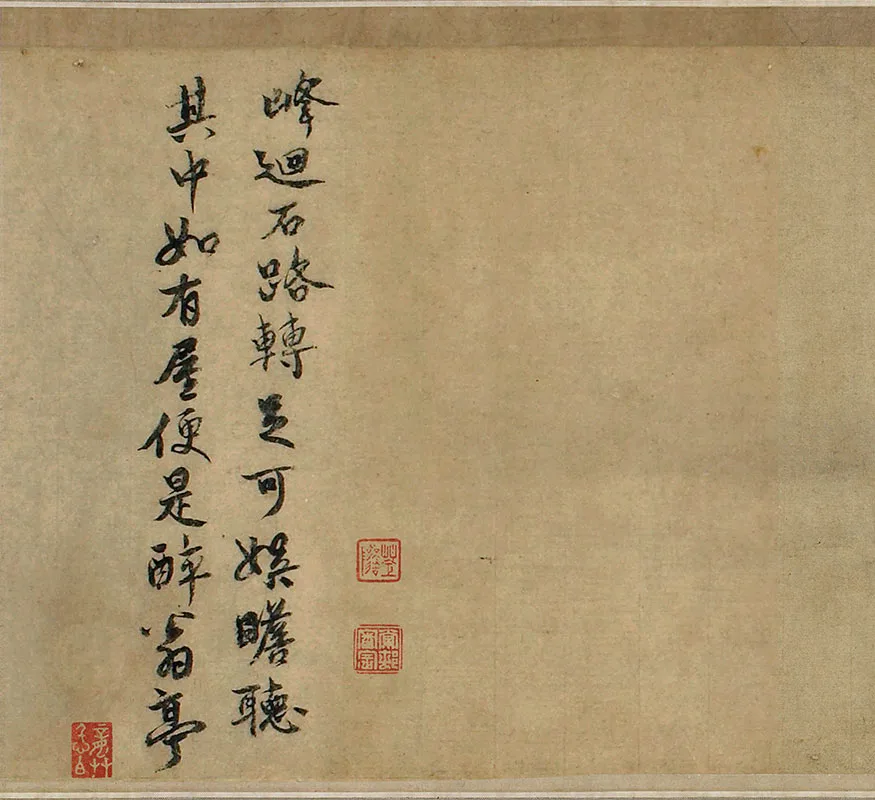 峰迴石路轉足可娛瞻聽
其中如有屋便是醉翁亭